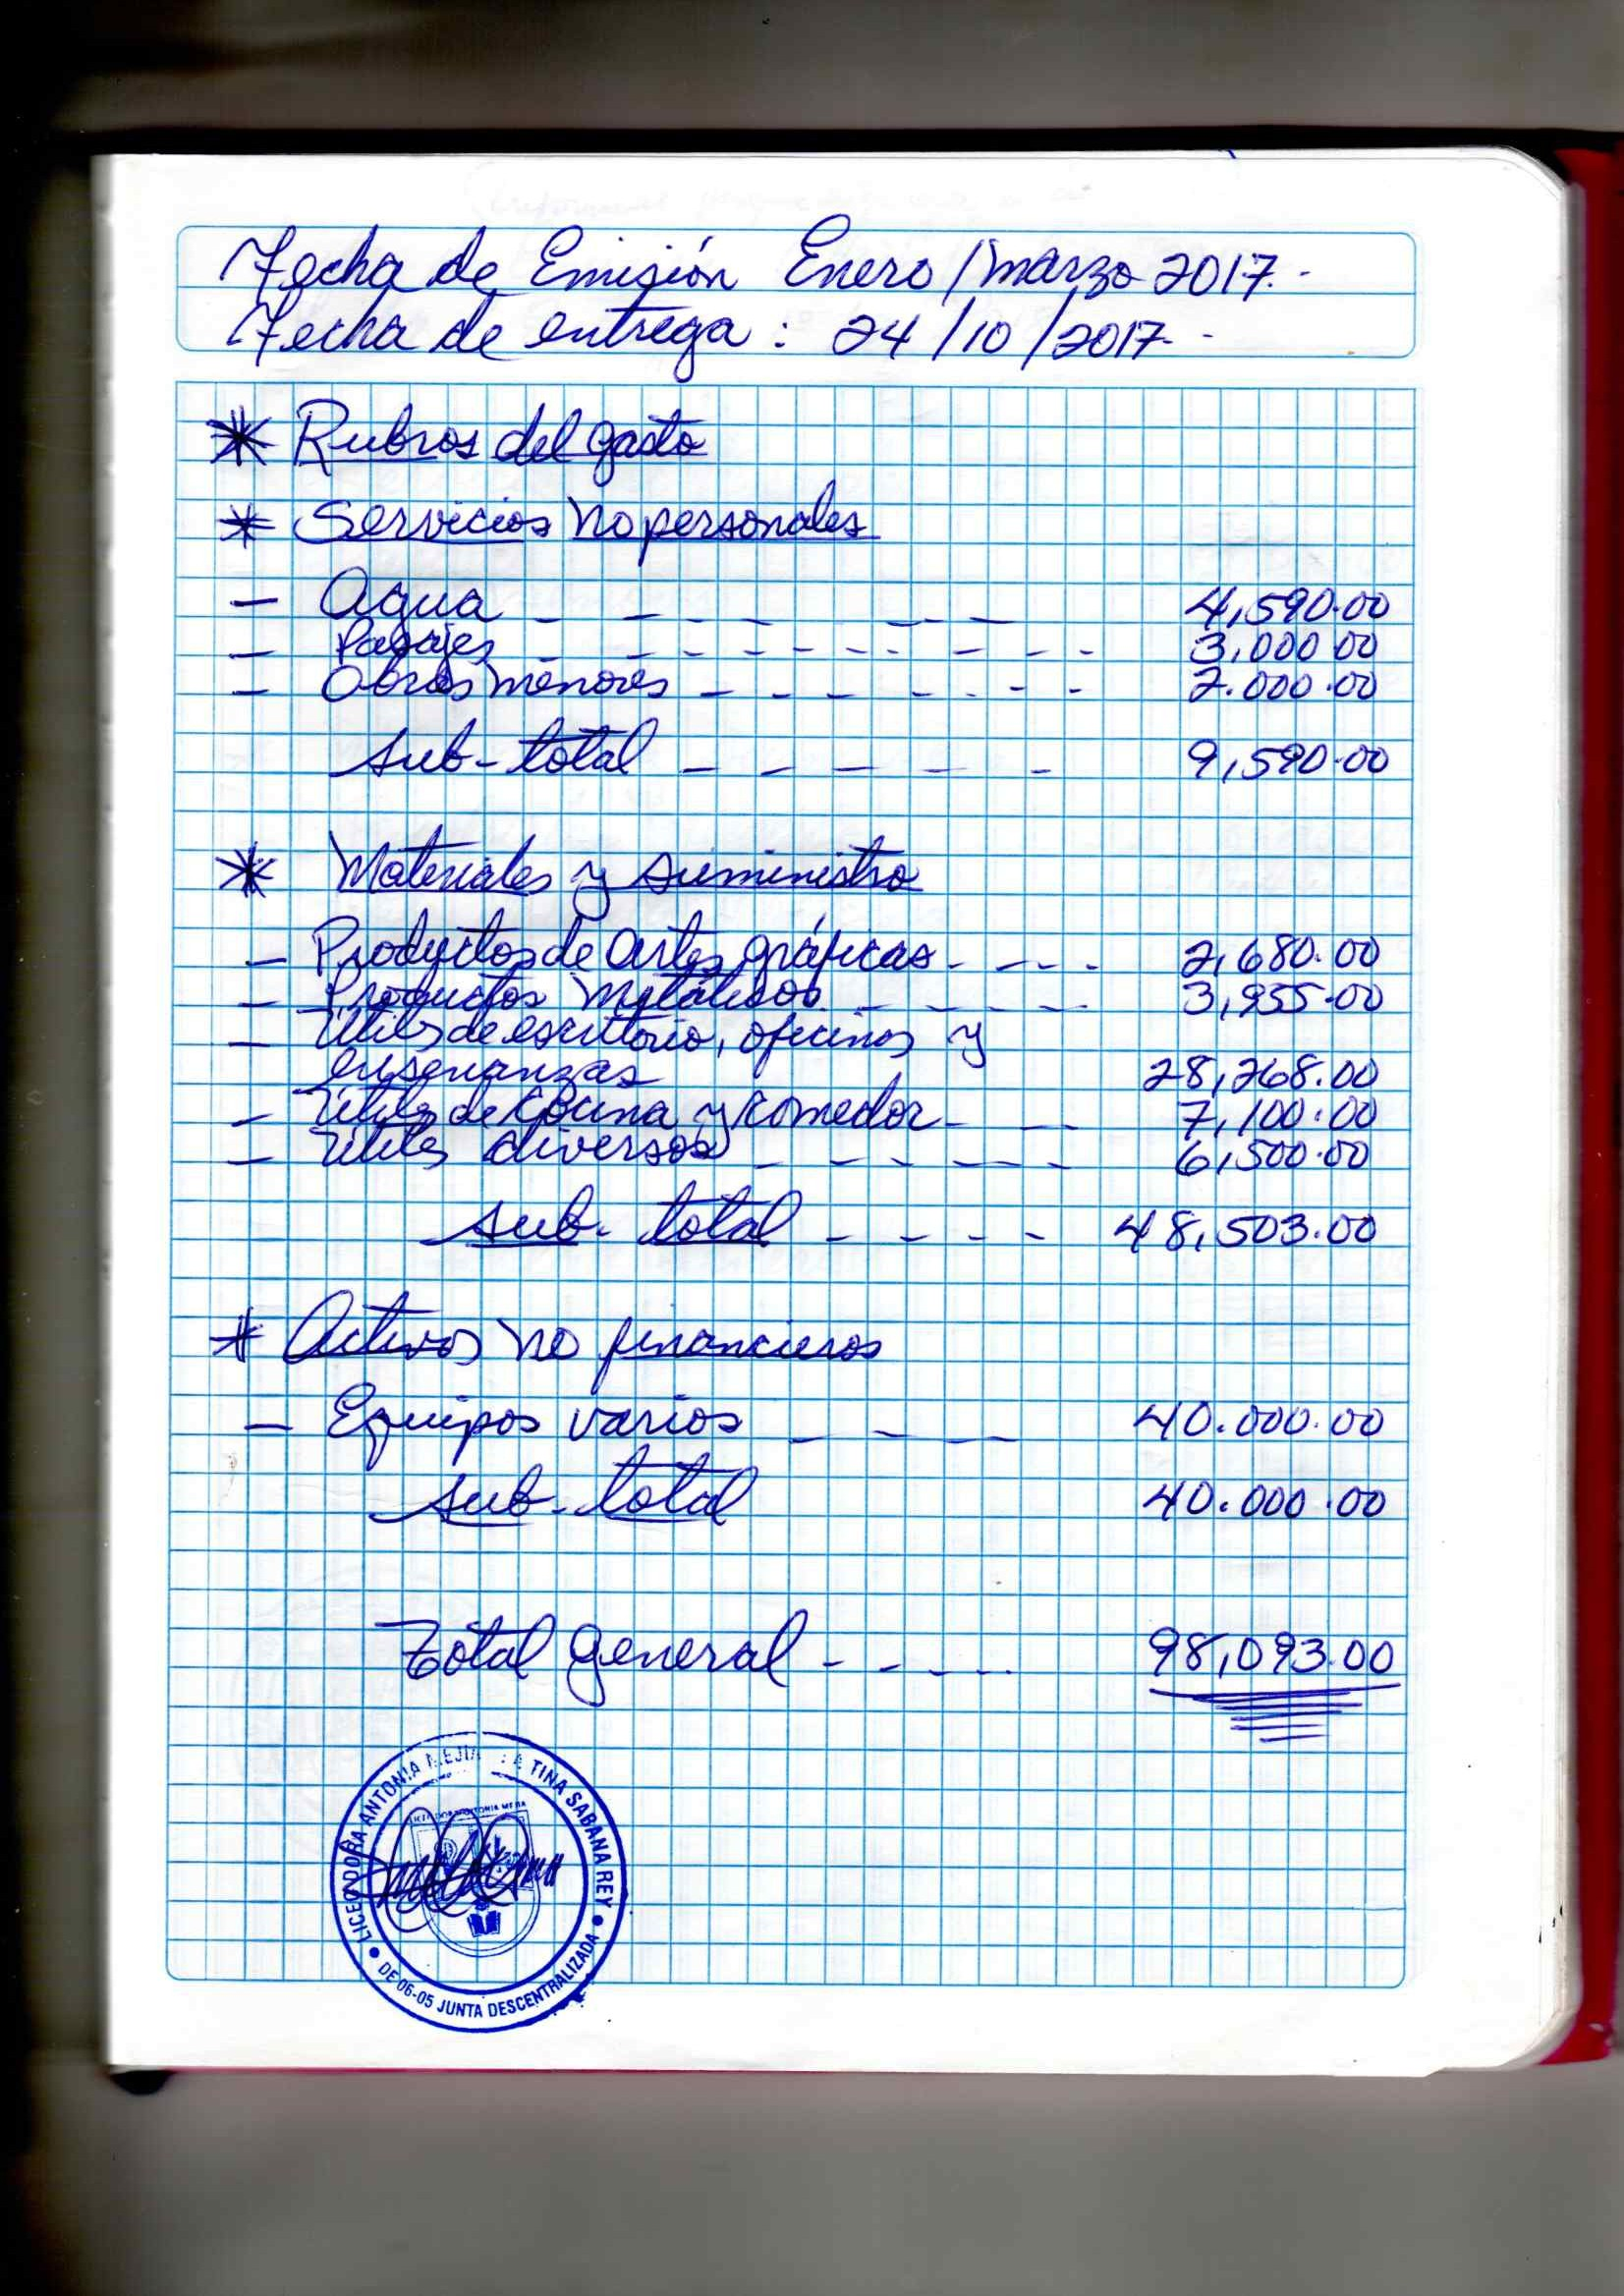 Fecha de Emisión Enero/marzo 2017.
Fecha de entrega: 24/10/2017.
* Rubros del gasto
* Servicios no personales
- Agua 4,590.00
- Pasajes 3,000 00
- Obras menores 2.000.00
sub-total 9,590.00
* Materiales y suministro
- Productos de artes gráficas 2,680.00
- Productos metálicos 3,955.00
- Utiles de escritorio, oficinas y
enseñanzas 28,268.00
- Utiles de cocina y comedor 7,100.00
- Utiles diversos 6,500.00
sub-total 48,503.00
* Activos no financieros
- Equipos varios 40.000.00
sub-total 40.000.00
Total general 98,093.00
LICEO DORA ANTONIA MEJIA TINA SABANA REY
DE 06-05 JUNTA DESCENTRALIZADA